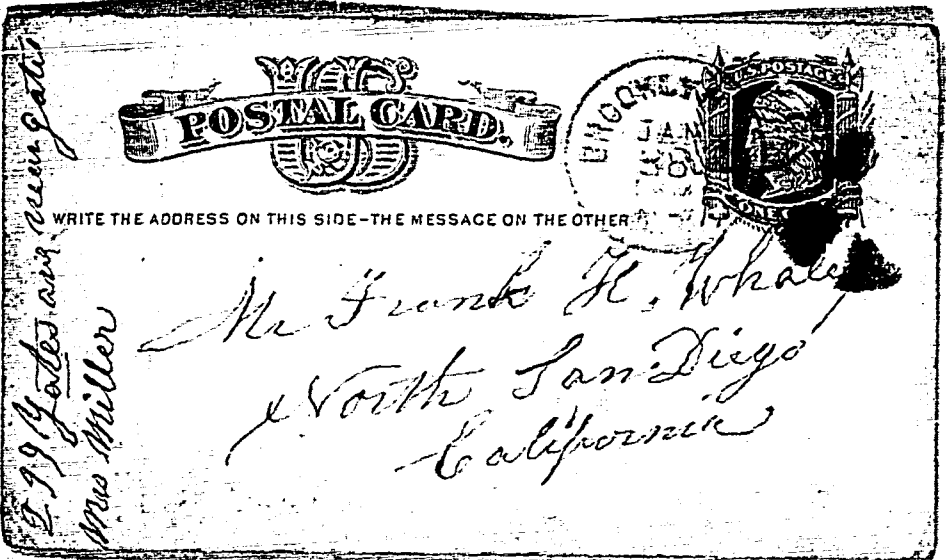 POSTAL CARD.
WRITE THE ADDRESS ON THIS SIDE-THE MESSAGE ON THE OTHER
U.S. POSTAGE
ONE
JAN
Mr Frank H. Whaley
North San Diego
California
Yates ave
Mrs Miller